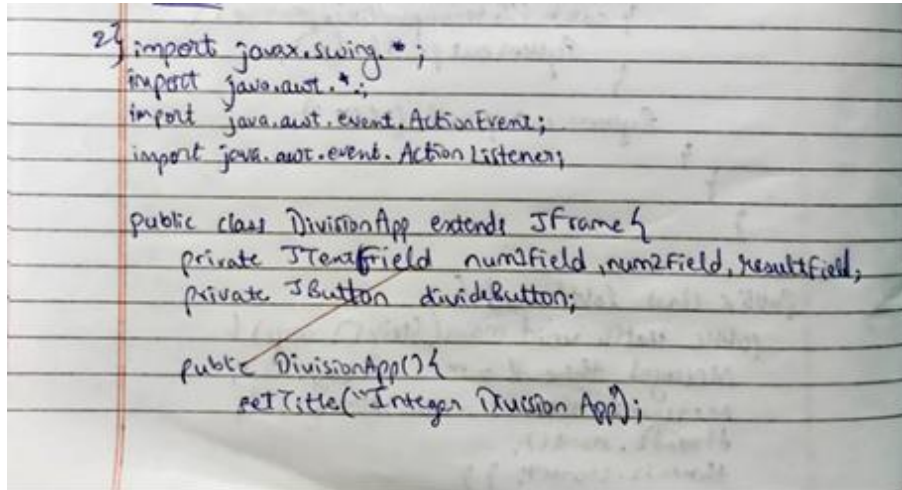 2} import javax.swing.*;
import java.awt.*;
import java.awt.event.ActionEvent;
import java.awt.event.ActionListener;
public class DivisionApp extends JFrame{
private JTextField num1Field, num2Field, resultField;
private JButton divideButton;
public DivisionApp(){
setTitle("Integer Division App");